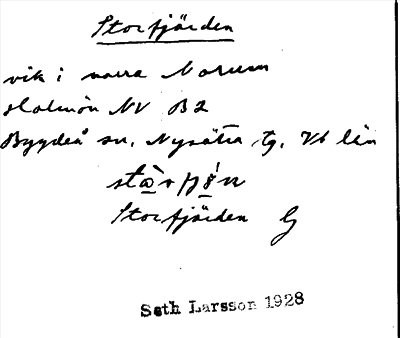 Storfjärden
vik i norra Norum
Holmön NV B2
Bygdeå sn. Nysätra tg. Vb län
Storfjärden G
Seth Larsson 1928